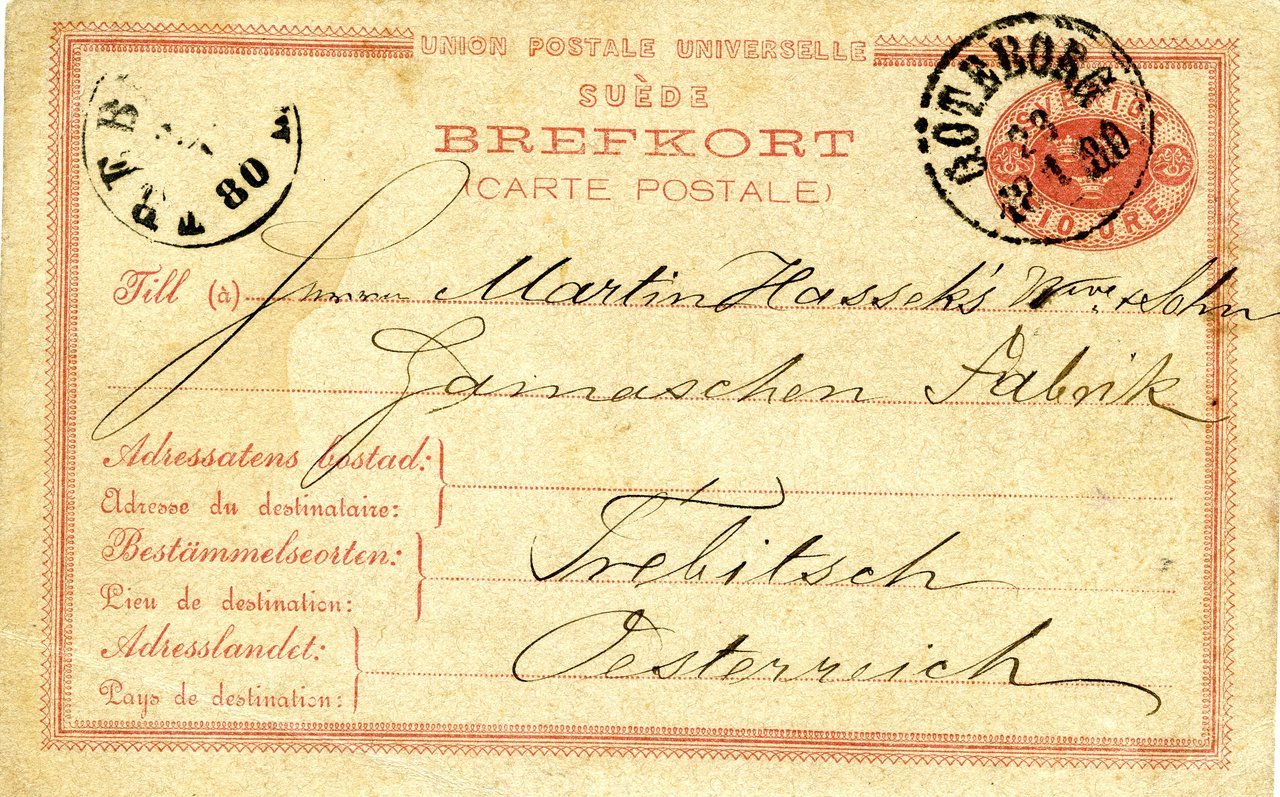 UNION POSTALE UNIVERSELLE
SUÈDE
BREFKORT
(CARTE POSTALE)
GÖTEBORG
80
SVERIGE
10 ÖRE
TREB
80
Till (à) Martin Hassek's Wwe & Sohn
Gamaschen Fabrik
Adressatens bostad:
Adresse du destinataire:
Bestämmelseorten:
Lieu de destination:
Trebitsch
Adresslandet:
Pays de destination:
Oesterreich